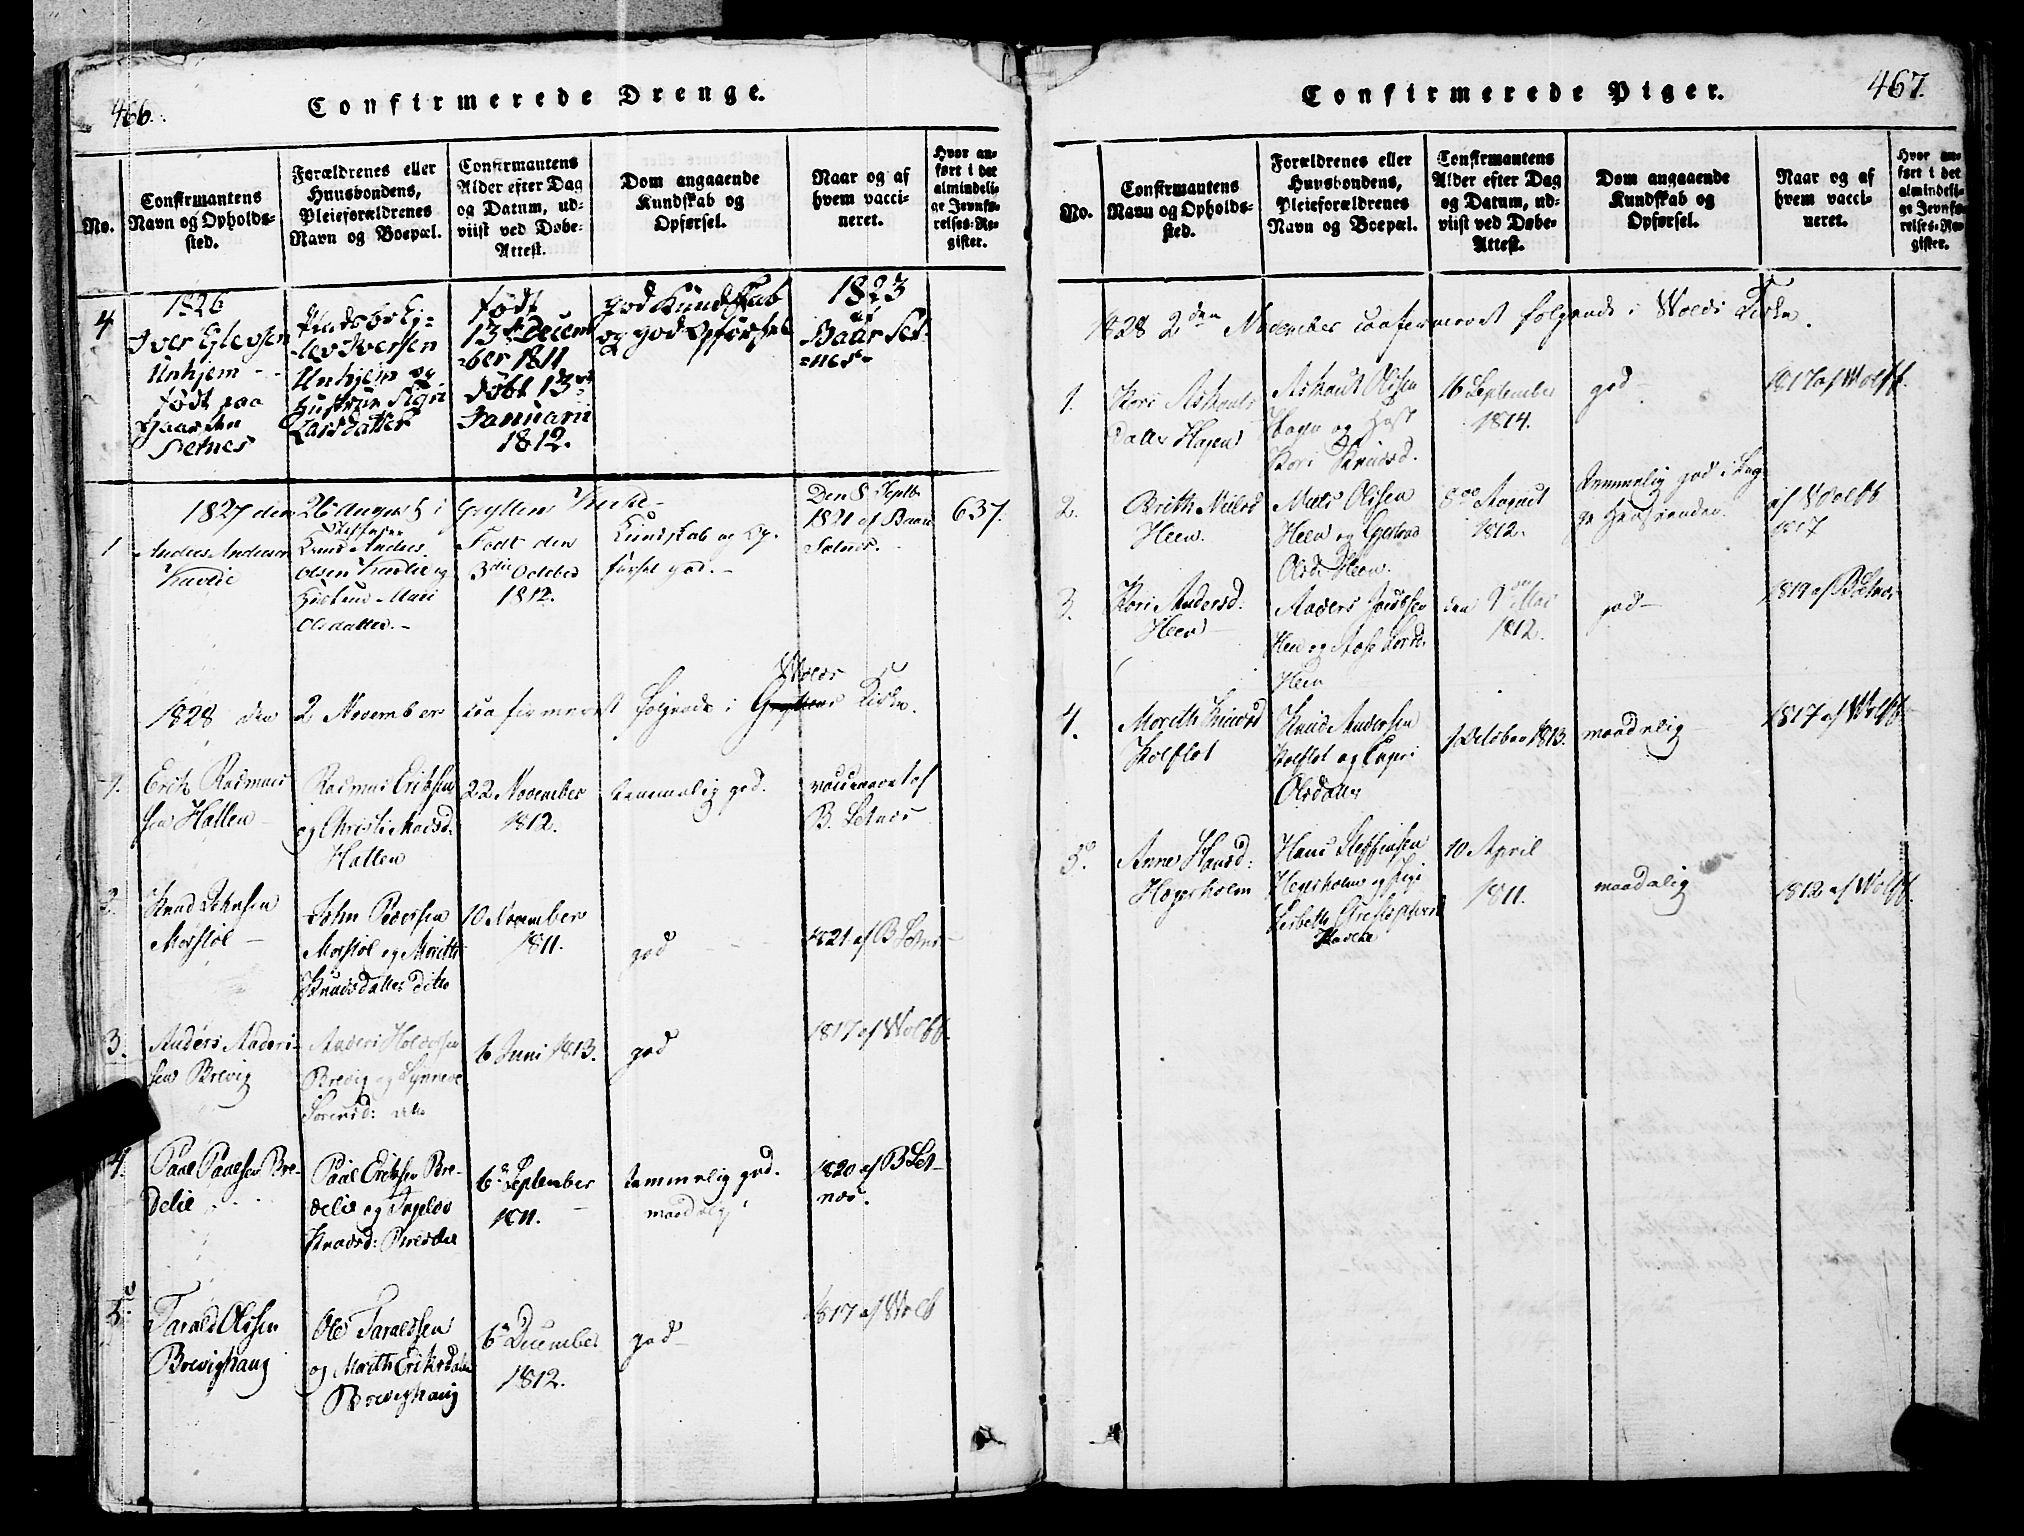 466.
Confirmerede Drenge.
No.
Confirmantens
Navn og Opholds-
sted.
Forældrenes eller
Huusbondens,
Pleieforældrenes
Navn og Boepæl.
Confirmantens
Alder efter Dag
og Datum, ud-
viist ved Døbe-
Attest.
Dom angaaende
Kundskab og
Opførsel.
Naar og af
hvem vacci-
neret.
Hvor an-
ført i det
almindeli-
ge Jevnfø-
relses-Re-
gister.
4
1826
Iver Eilevsen
Unhjem
født paa
Gaarden
Setnes
lev Iversen
Unhjem og
Hustrue Sigri
Larsdatter
født
13de Decem-
ber 1811
døbt 13de
Januarii
1812.
god Kundskab
og god Opførsel
1823
af
Baar Set-
nes
1827 den 26 August i Grytten
1
Anders Andersen
Olsen
Hustrue Mari
Olsdatter.
Født den
3die October
1812.
Kundskab og Op-
førsel god.
Den 8 Septb
1821 af Baar
Setnes.
637.
1828 den 2 November confirmeret følgende i Wolds Kirke.
1.
Erik Rasmus-
sen Hatten
Rasmus Eriksen
og Christi Madsd.
Hatten
22 November
1812.
temmelig god.
vaccineret af
B. Setnes
2.
Knud Johnsen
Morstøl
John Pedersen
Morstøl og Marith
Knudsdatter ditto
10 November
1811.
god
1821 af B Setnes
3.
Anders Anders-
sen Brevig
Anders Holdersen
Brevig og Synneve
Sørensd: ditto
6 Juni 1813.
god
1817 af Wolff.
4.
Paal Paalsen Bre-
delie
Paal Eriksen Bre-
delie og Ingeboe
Knudsd: Bredelie
6te September
1811.
temmelig god.
maadelig
1820 af B Set-
nes.
5.
Tarald Olssen
Brevighaug
Ole Taraldsen
og Marith Eriksdatter
Brevighaug
6te December
1812.
god
1817 af Wolff
Confirmerede Piger.
467.
No.
Confirmantens
Navn og Opholds-
sted.
Forældrenes eller
Huusbondens,
Pleieforældrenes
Navn og Boepæl.
Confirmantens
Alder efter Dag
og Datum, ud-
viist ved Døbe-
Attest.
Dom angaaende
Kundskab og
Opførsel.
Naar og af
hvem vacci-
neret.
Hvor an-
ført i det
almindeli-
ge Jevnfø-
relses-Re-
gister.
1828 2den November confirmeret følgende i Wolds Kirke.
1.
Kari Asmunds
datter Hagen
Asmund Olssen
Hagen og Hust
Kari Knudsd.
16 September
1814.
god
1817 af Wolff.
2.
Brith Nielsd
Heen
Niels Olssen
Heen og
Olsd. Heen.
8de August
1812.
Temmelig god
af Wolff
1817
3.
Kari Andersd.
Heen
Anders Jacobsen
Heen og
Heen
den 9de Mai
1812.
god
1819 af B Setnes
4.
Marith Knudsd
Kolflot
Knud Andersen
Kolflot og Ingri
Olsdatter
1 October 1813.
maadelig
1817 af Wolff
5.
Anne Hansd:
Hagerholm
Hans Steffensen
Hagerholm og Pige
Lisbeth
10 April
1811.
maadelig
1812 af Wolff.